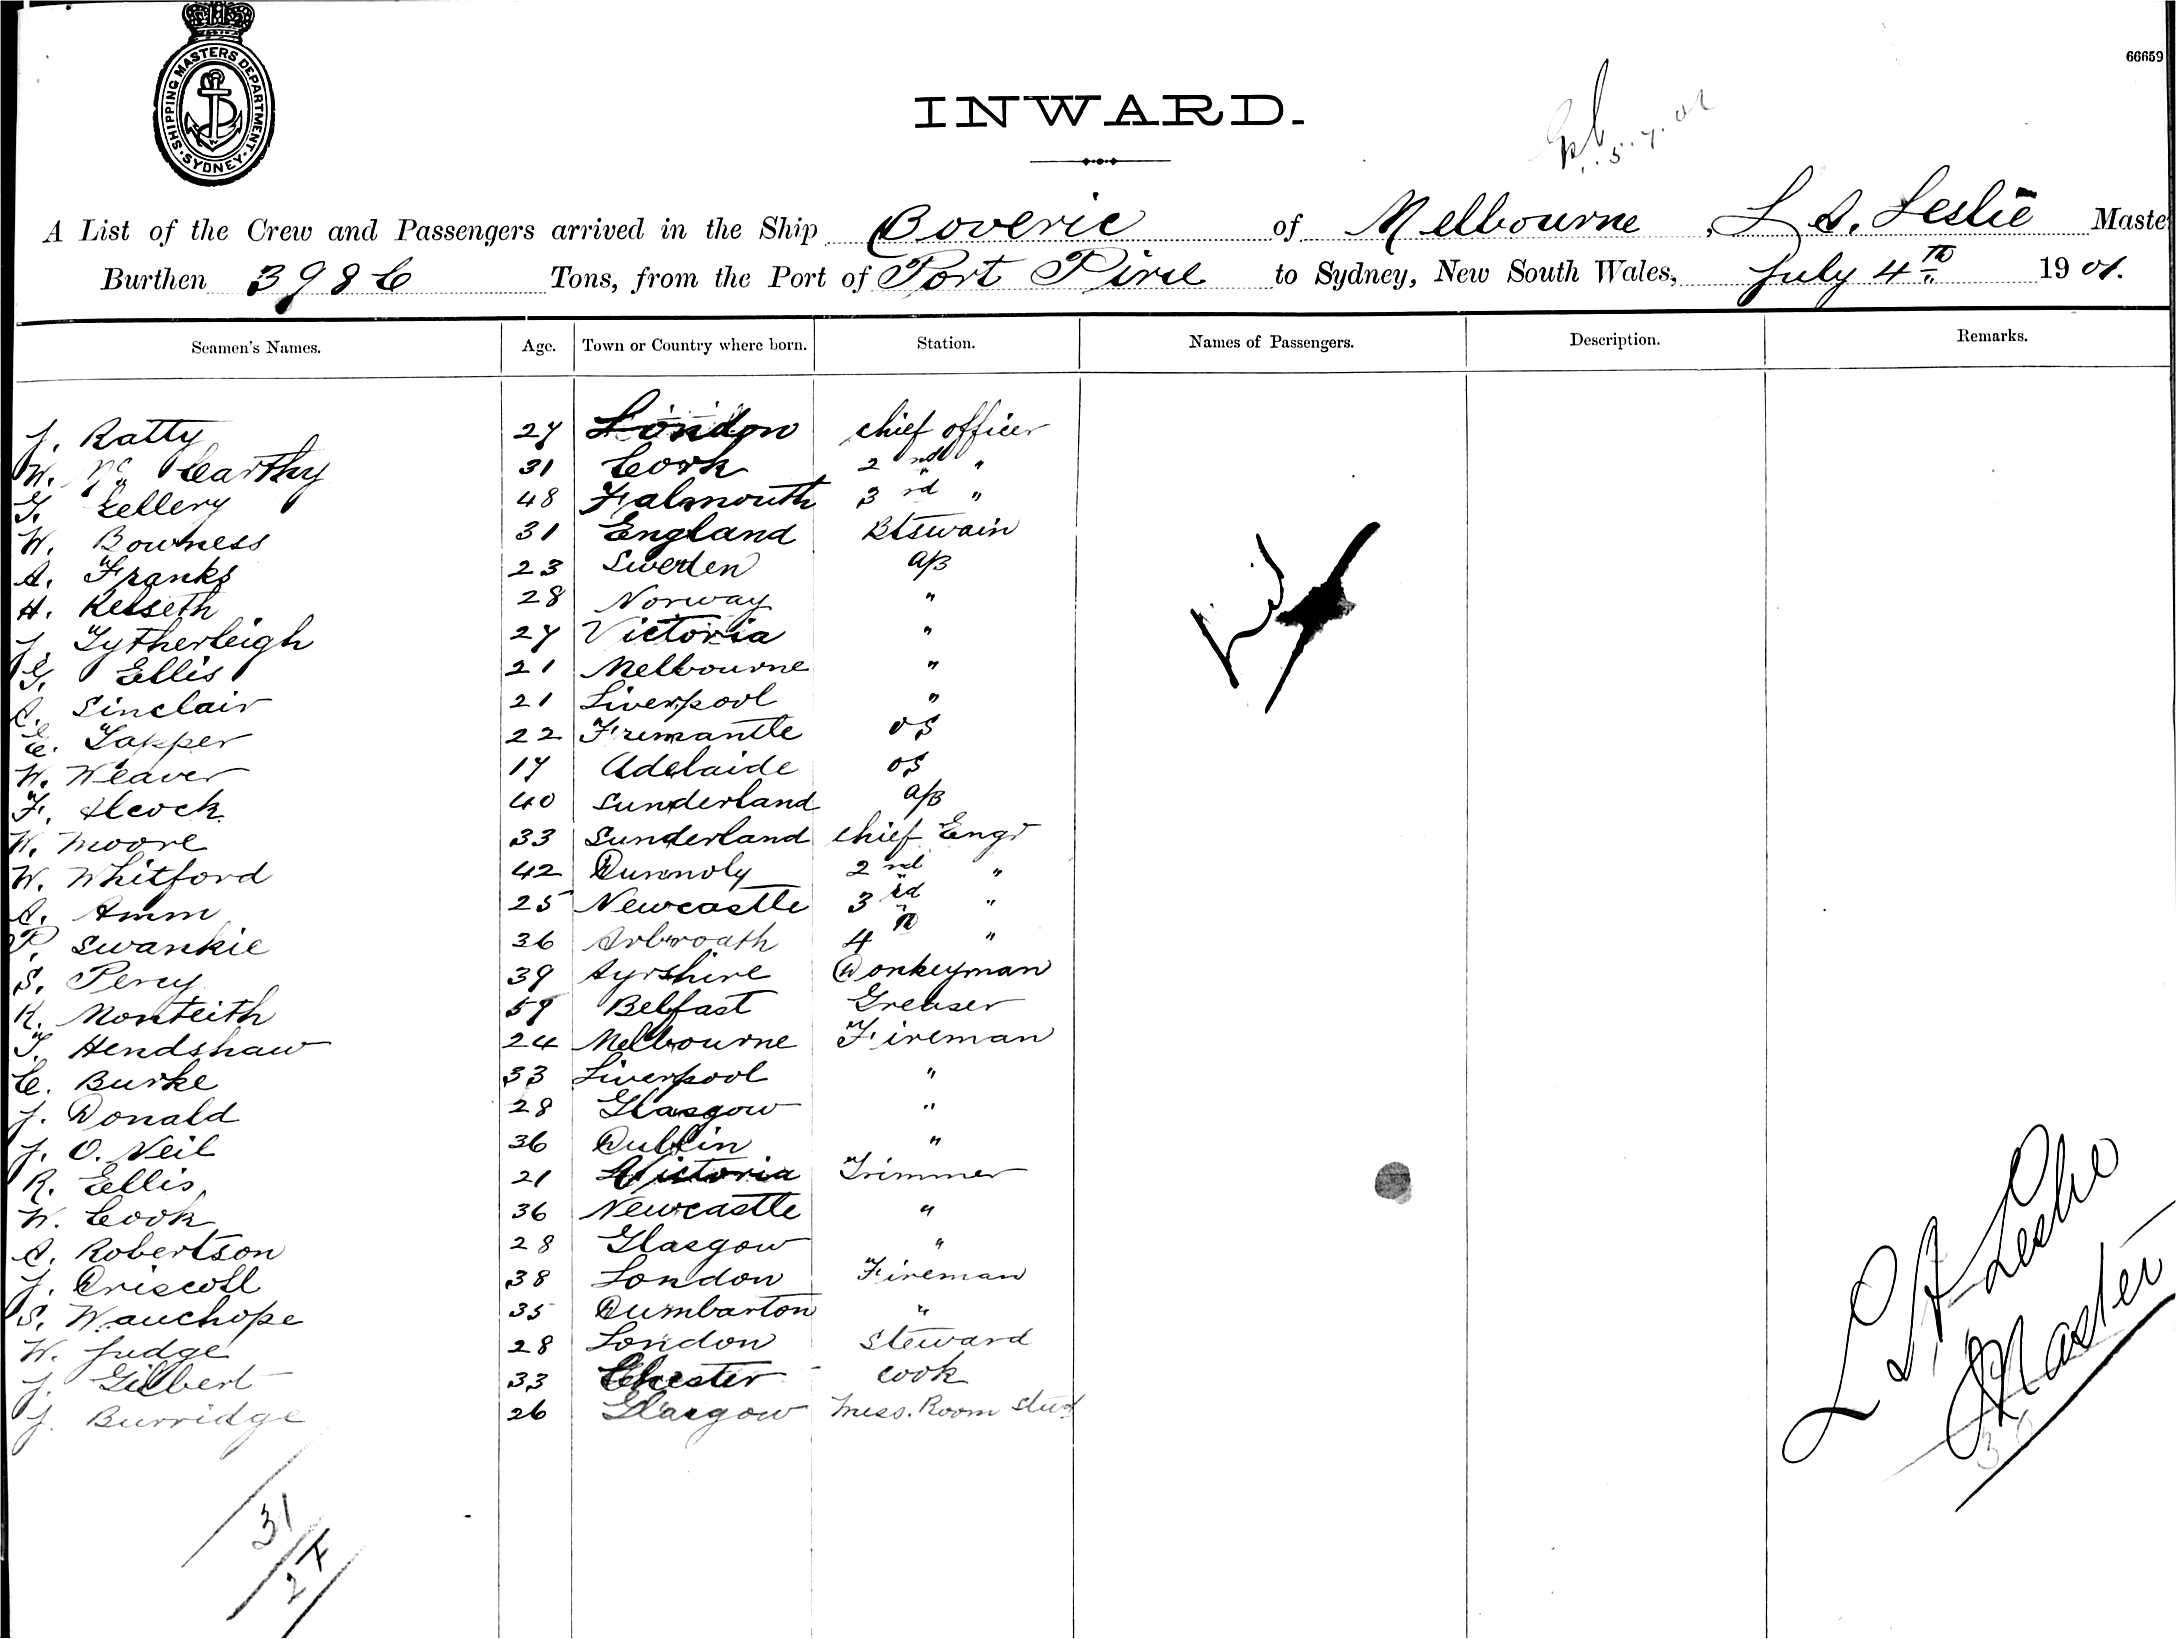 SHIPPING MASTERS DEPARTMENT. SYDNEY.
66659
INWARD.
5.7.01
A List of the Crew and Passengers arrived in the Ship Boveric of Melbourne, L A. Leslie Maste
Burthen 3986 Tons, from the Port of Port Pirie to Sydney, New South Wales, July 4th 1901.
Seamen's Names. Age. Town or Country where born. Station. Names of Passengers. Description. Remarks.
J. Ratty 27 London chief officer
W. Mc Carthy 31 Cork 2nd "
G. Zellery 48 Falmouth 3rd "
W. Bowness 31 England Btswain
A. Franks 23 Sweden A/B
H. Kelseth 28 Norway "
J. Tytherleigh 27 Victoria "
G. Ellis 21 Melbourne "
A. Sinclair 21 Liverpool "
E. Tapper 22 Fremantle OS
W. Weaver 17 Adelaide OS
F. Alcock 40 Sunderland A/B
W. Moore 33 Sunderland chief Engr
W. Whitford 42 Dunnoly 2nd "
A. Amm 25 Newcastle 3rd "
P. Swankie 36 Arbroath 4th "
S. Percy 39 Ayrshire Donkeyman
R. Monteith 59 Belfast Greaser
T. Hendshaw 24 Melbourne Fireman
C. Burke 33 Liverpool "
J. Donald 28 Glasgow "
J. O. Neil 36 Dublin "
R. Ellis 21 Victoria Trimmer
W. Cook 36 Newcastle "
A. Robertson 28 Glasgow "
J. Driscoll 38 London Fireman
S. Wauchope 35 Dumbarton "
W. Judge 28 London Steward
J. Gilbert 33 Chester cook
J. Burridge 26 Glasgow Mess. Room Stwd
nil
L A Leslie
Master
31
27